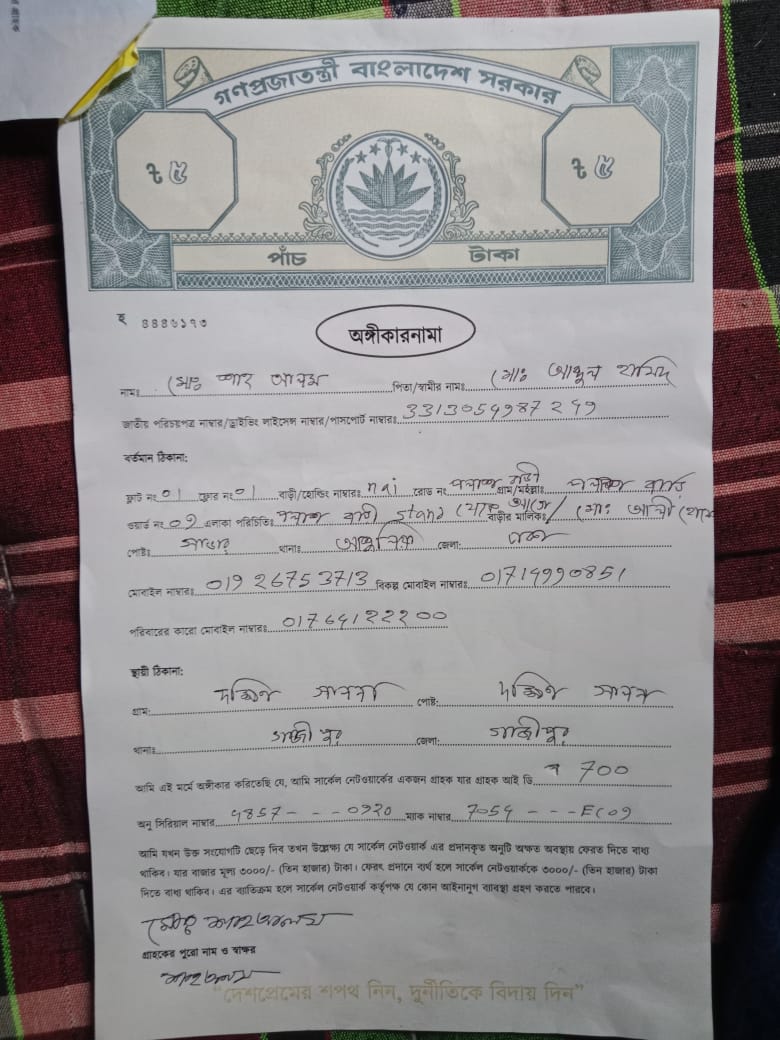 গণপ্রজাতন্ত্রী বাংলাদেশ সরকার
৳ ৫ ৳ ৫
পাঁচ টাকা
হ ৪৪৪৬১৭৩
অঙ্গীকারনামা
নামঃ মোঃ শাহ আলম পিতা/স্বামীর নামঃ মোঃ আব্দুল হামিদ
জাতীয় পরিচয়পত্র নাম্বার/ড্রাইভিং লাইসেন্স নাম্বার/পাসপোর্ট নাম্বারঃ 3313054987249
বর্তমান ঠিকানা:
ফ্লাট নং 01 ফ্লোর নং 01 বাড়ী/হোল্ডিং নাম্বারঃ nai রোড নং পলাশ বাড়ী গ্রাম/মহল্লাঃ পলাশ বাড়ী
ওয়ার্ড নং 09 এলাকা পরিচিতিঃ পলাশ বাড়ী stand বাড়ীর মালিকঃ মোঃ আলী
পোষ্টঃ সাভার থানাঃ আশুলিয়া জেলা: ঢাকা
মোবাইল নাম্বারঃ 01926753713 বিকল্প মোবাইল নাম্বারঃ 01714990851
পরিবারের কারো মোবাইল নাম্বারঃ 01764122200
স্থায়ী ঠিকানা:
গ্রাম: দক্ষিন সালনা পোষ্ট: দক্ষিন সালনা
থানাঃ গাজীপুর জেলা: গাজীপুর
আমি এই মর্মে অঙ্গীকার করিতেছি যে, আমি সার্কেল নেটওয়ার্কের একজন গ্রাহক যার গ্রাহক আই ডি 700
অনু সিরিয়াল নাম্বার 4857 - - - 0920 ম্যাক নাম্বার 7054 - - - EC09
আমি যখন উক্ত সংযোগটি ছেড়ে দিব তখন উল্লেক্ষ্য যে সার্কেল নেটওয়ার্ক এর প্রদানকৃত অনুটি অক্ষত অবস্থায় ফেরত দিতে বাধ্য
থাকিব। যার বাজার মূল্য ৩০০০/- (তিন হাজার) টাকা। ফেরৎ প্রদানে ব্যর্থ হলে সার্কেল নেটওয়ার্ককে ৩০০০/- (তিন হাজার) টাকা
দিতে বাধ্য থাকিব। এর ব্যতিক্রম হলে সার্কেল নেটওয়ার্ক কর্তৃপক্ষ যে কোন আইনানুগ ব্যাবস্থা গ্রহণ করতে পারবে।
মোঃ শাহআলম
গ্রাহকের পুরো নাম ও স্বাক্ষর
শাহআলম
"দেশপ্রেমের শপথ নিন, দুর্নীতিকে বিদায় দিন"